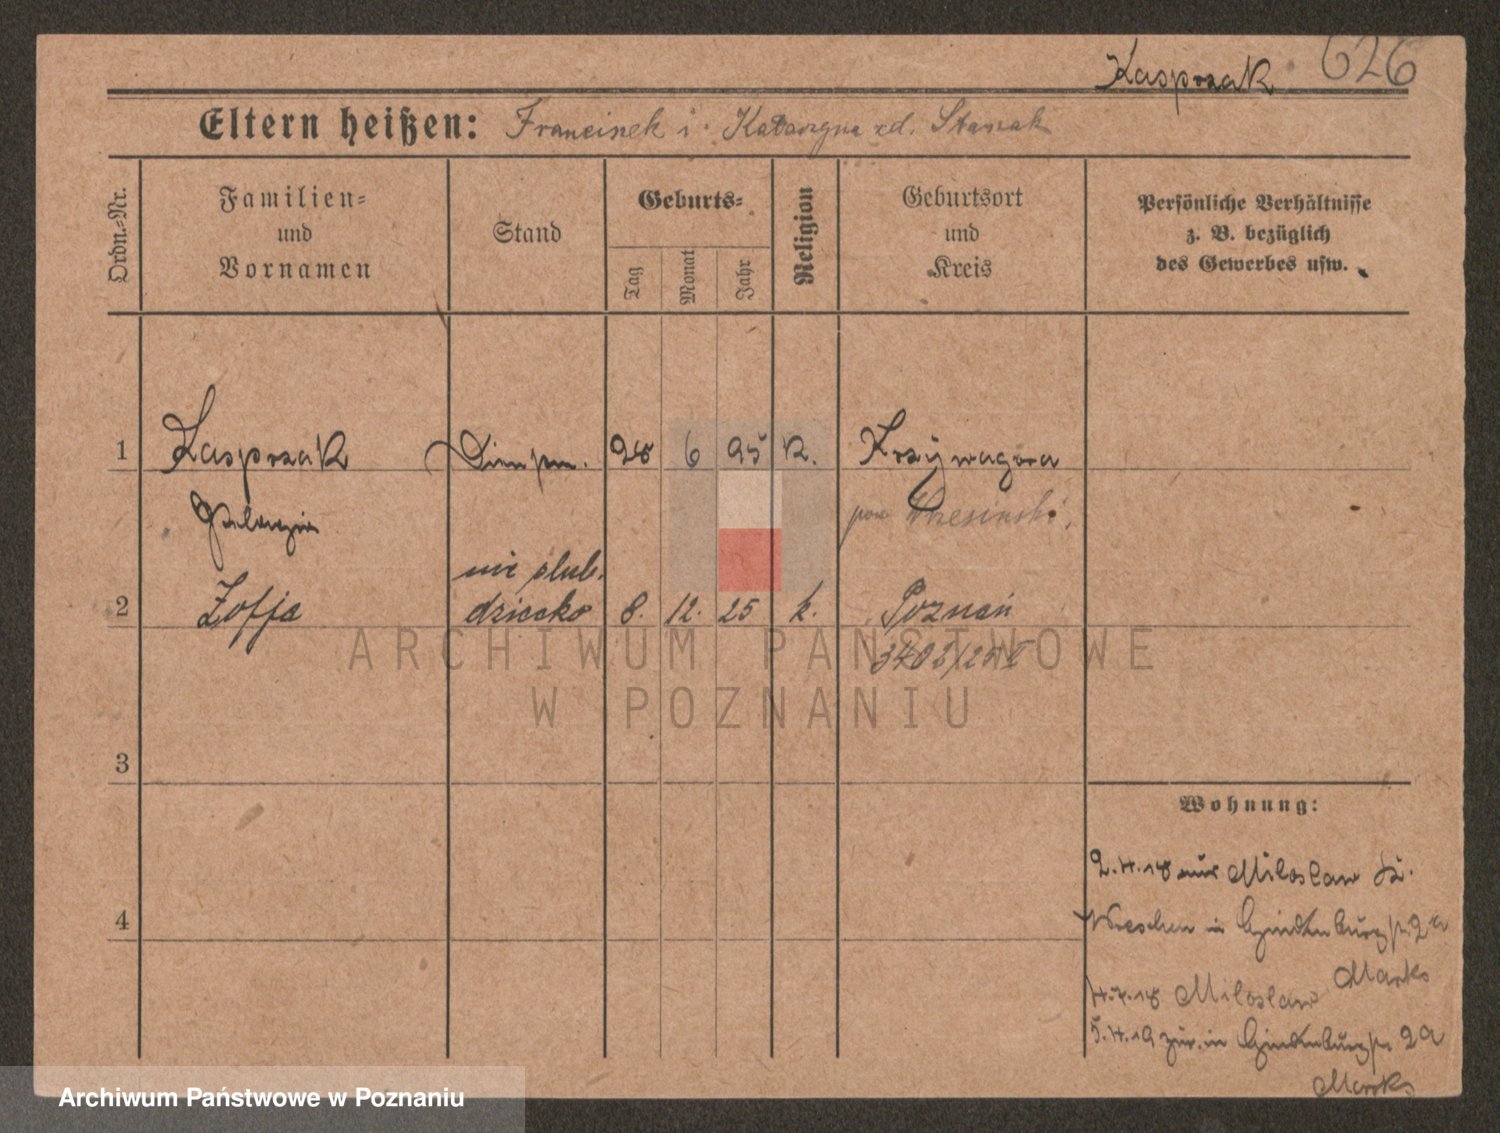 Kasprzak 626
Eltern heißen: Franciszek i Katarzyna zd. Stasiak
Ordn.-Nr.
Familien-
und
Vornamen
Stand
Geburts-
Tag
Monat
Jahr
Religion
Geburtsort
und
Kreis
Persönliche Verhältnisse
z. B. bezüglich
des Gewerbes usw.
1 Kasprzak 28 6 95 K. Krzywagora
Pelagia pow Wresinski
nie ślub.
2 Zofja dziecko 8. 12. 25 k. Poznań
3403/25
3
Wohnung:
4
2.4.18 aus Miloslaw Kr.
Wreschen in Hindenburgstr. 2a
Marks
4.4.18 Miloslaw
5.4.19 zur. in Hindenburgstr 2a
Marks
ARCHIWUM PAŃSTWOWE
W POZNANIU
Archiwum Państwowe w Poznaniu